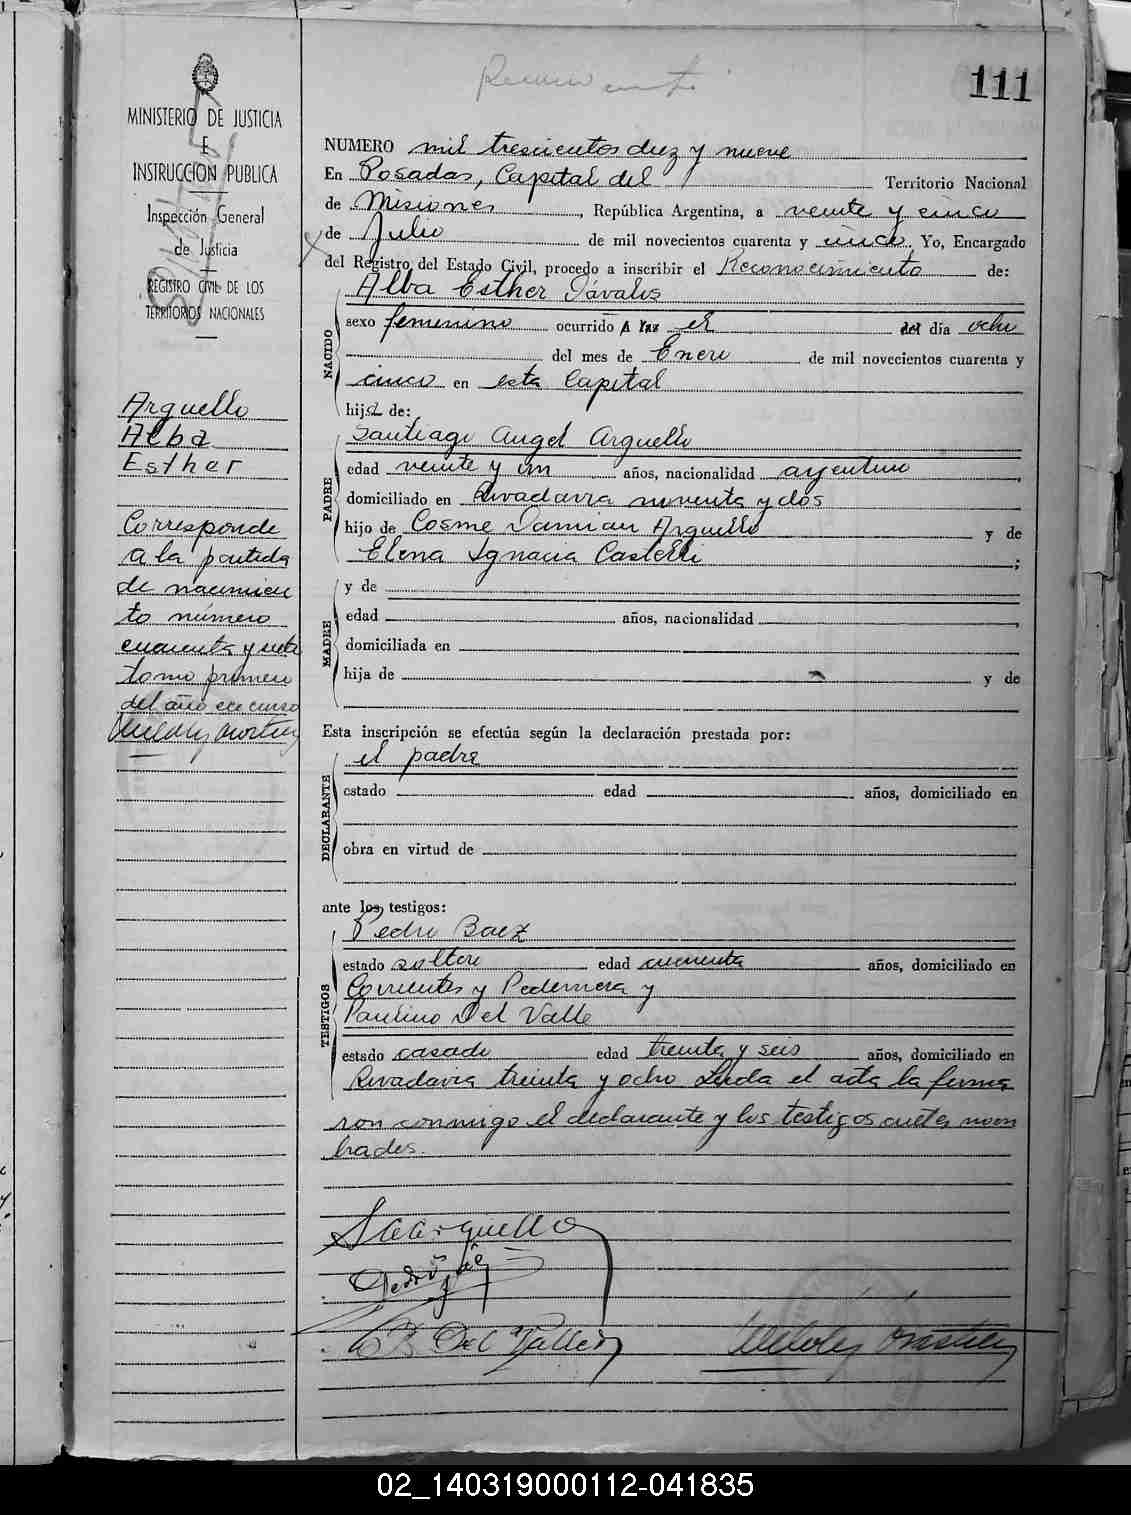 111
MINISTERIO DE JUSTICIA
E
INSTRUCCION PUBLICA
Inspección General
de Justicia
REGISTRO CIVIL DE LOS
TERRITORIOS NACIONALES
Arguello
Alba
Esther
Corresponde
a la partida
de nacimien
to número
cuarenta y siete
tomo primero
del año en curso
NUMERO mil trescientos diez y nueve
En Posadas, Capital del Territorio Nacional
de Misiones, República Argentina, a veinte y cinco
de Julio de mil novecientos cuarenta y cinco. Yo, Encargado
del Registro del Estado Civil, procedo a inscribir el Reconocimiento de:
Alba Esther Dávalos
NACIDO
sexo femenino ocurrido A las el del día ocho
del mes de Enero de mil novecientos cuarenta y
cinco en esta Capital
hija de:
PADRE
Santiago Angel Arguello
edad veinte y un años, nacionalidad argentino
domiciliado en Rivadavia noventa y dos
hijo de Cosme Damian Arguello y de
Elena Ignacia Castelli ;
MADRE
y de
edad años, nacionalidad ,
domiciliada en
hija de y de
Esta inscripción se efectúa según la declaración prestada por:
el padre
DECLARANTE
estado edad años, domiciliado en
obra en virtud de
ante los testigos:
TESTIGOS
Pedro Baez
estado soltero edad cuarenta años, domiciliado en
Corrientes y Pedernera y
Paulino Del Valle
estado casado edad treinta y seis años, domiciliado en
Rivadavia treinta y ocho Leída el acta la firma
ron conmigo el declarante y los testigos antes nom
brados.
SAArguello
Pedro Baez
P. Del Valle
02_140319000112-041835